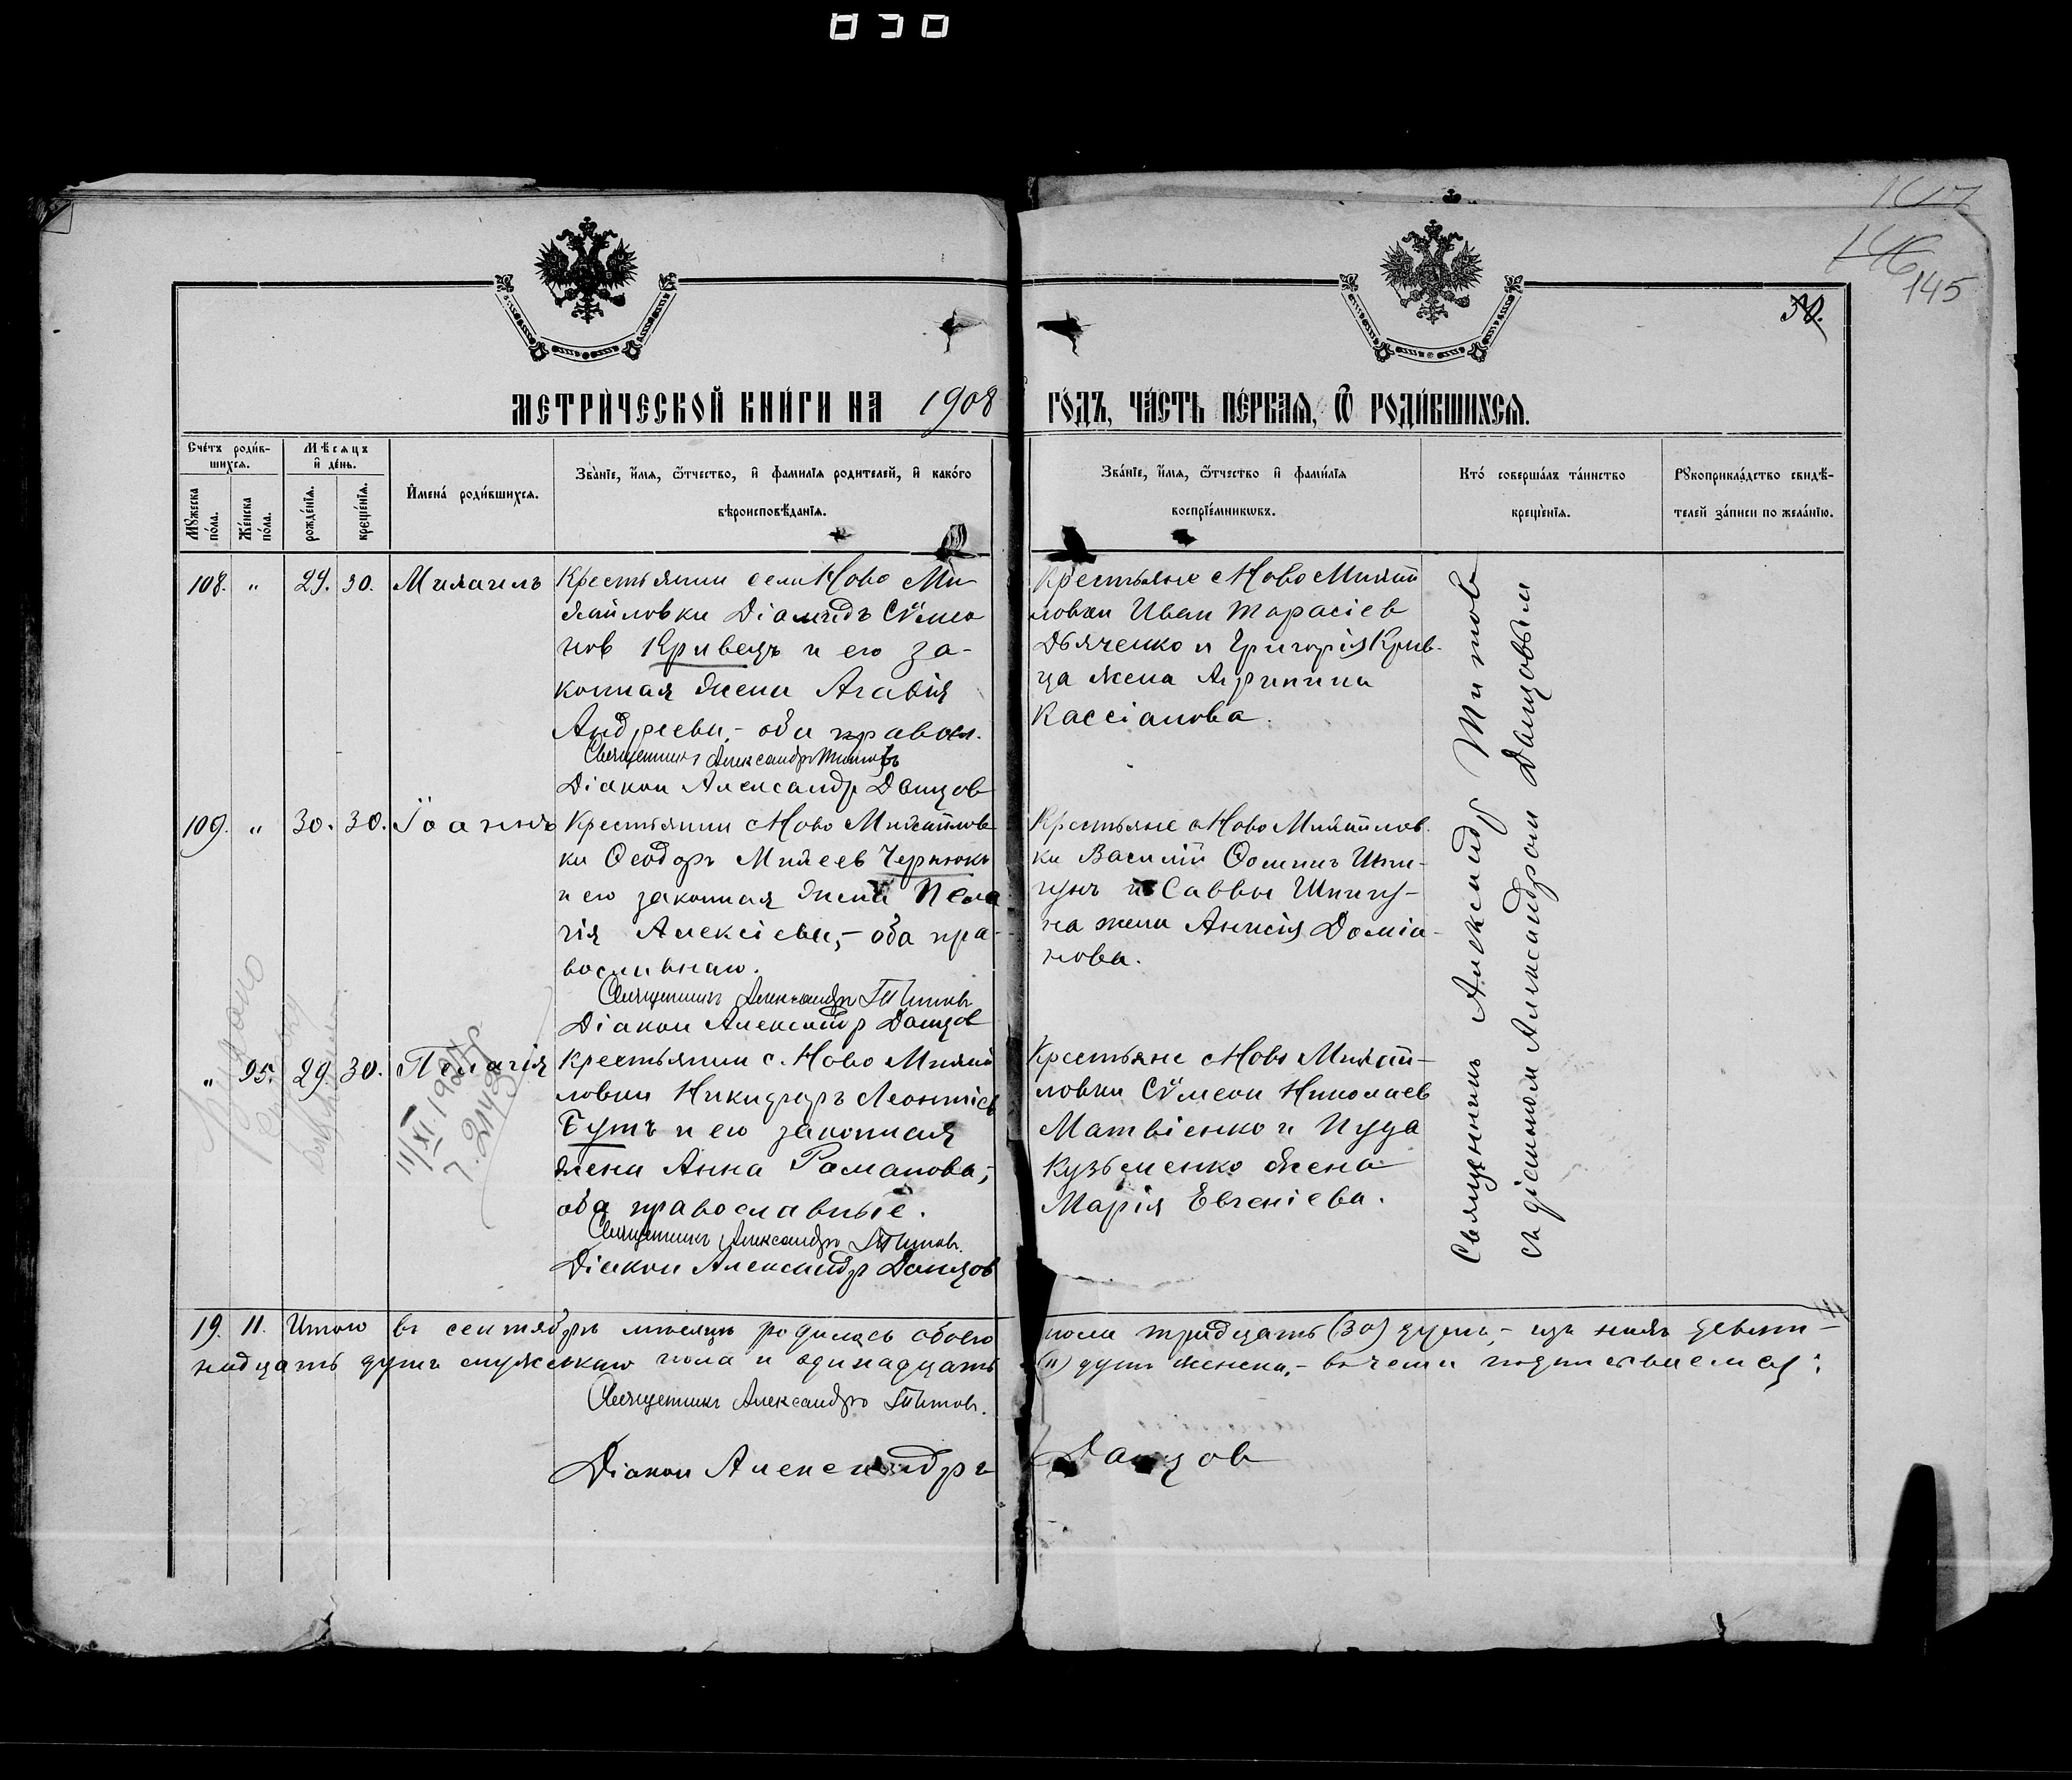 030
145
МЕТРИЧЕСКОЙ КНИГИ НА 1908 ГОДЪ, ЧАСТЬ ПЕРВАЯ, Ѡ РОДИВШИХСЯ.
Счетъ родив-
шихся.
Мѣсяцъ
и день.
Мужеска пола.
Женска пола.
рожденія.
крещенія.
Имена родившихся.
Званіе, имя, ѿтчество, и фамилія родителей, и какого
вѣроисповѣданія.
Званіе, имя, ѿтчество и фамилія
воспріемникѡвъ.
Кто совершалъ таинство
крещенія.
Рукоприкладство свидѣ-
телей записи по желанію.
108. " 29. 30. Михаилъ
Крестьянин села Ново Ми
хайловки Діомидъ Сѵмео
нов Кривецъ и его за-
конная жена Агавія
Андреева, - оба правосл.
Священникъ Александръ Титовъ
Діакон Александр Данцов
Крестьяне с Ново Михай
ловки Иван Тарасіев
Дьяченко и Григорія Крив-
ца жена Агрипина
Кассіанова.
109. " 30. 30. Іоаннъ
Крестьянин с Ново Михайлов
ки Ѳеодоръ Михеев Чернюкъ
и его законная жена Пела
гія Алексіева, - оба пра-
вославнаго.
Священникъ Александръ Титовъ
Діакон Александр Данцов
Крестьяне с Ново Михайлов.
ки Василій Ѳоминъ Шпи-
гунъ и Саввы Шпигу-
на жена Анисія Доміа-
нова.
" 95. 29. 30. Пелагія
Крестьянин с. Ново Михай
ловки Никифоръ Леонтіев
Бутъ и его законная
жена Анна Романова,-
оба православные.
Священникъ Александръ Титовъ.
Діакон Александр Данцов
Крестьяне с Ново Михай-
ловки Сѵмеон Николаев
Матвіенко и Пуда
Кузьменко жена
Марія Евгеніева.
Священникъ Александр Титов
съ діаконом Александром Данцовым
19. 11. Итого въ сентябрѣ мѣсяцѣ родилось обоего пола тридцать (30) душъ, - изъ нихъ девят-
надцать душъ мужскаго пола и одинадцать (11) душъ женска, - въ чемъ подписываемся:
Священникъ Александръ Титовъ.
Діакон Александръ Данцов